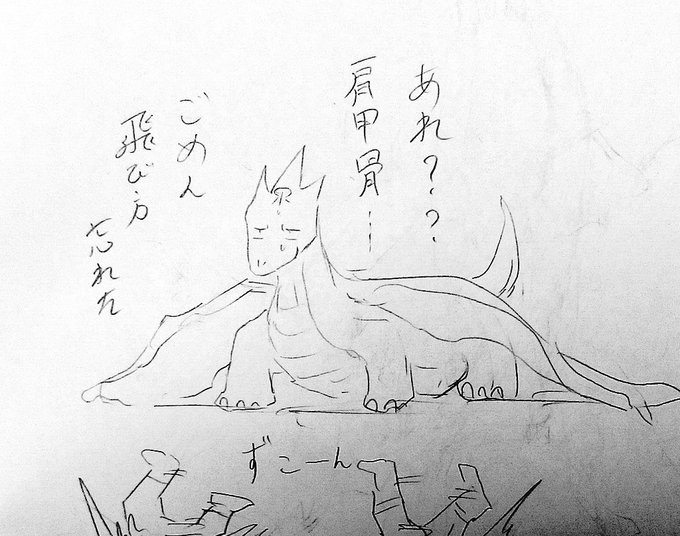 あれ？？
肩甲骨…
ごめん
飛び方
忘れた
ずこーん